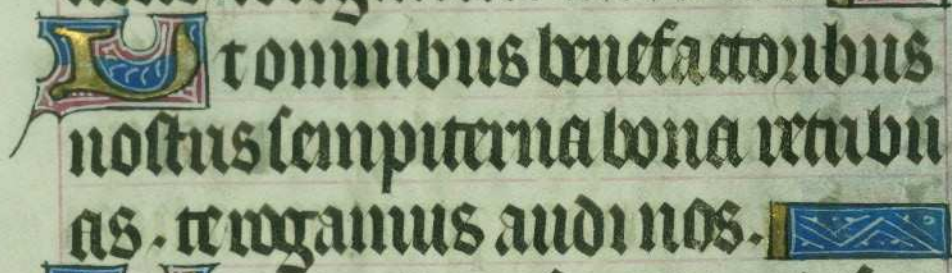 Ut omnibus benefactoribus
nostris sempiterna bona retribu
as. te rogamus audi nos.